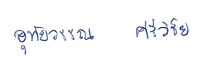 อุทัยวรรณ ศรีวิชัย